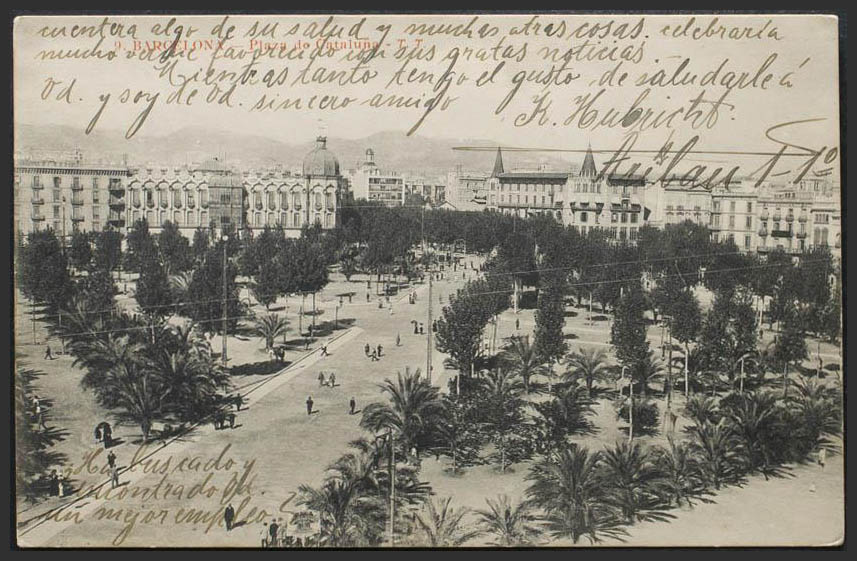 cuentera algo de su salud y muchas otras cosas. celebraría
9. BARCELONA. - Plaza de Cataluña - T. T.
mucho verme favorecido con sus gratas noticias.
Mientras tanto tengo el gusto de saludarle á
Vd. y soy de Vd. sincero amigo
K. Hubricht.
Aribau 1-1º
¿Ha buscado y
encontrado Vd.
un mejor empleo?